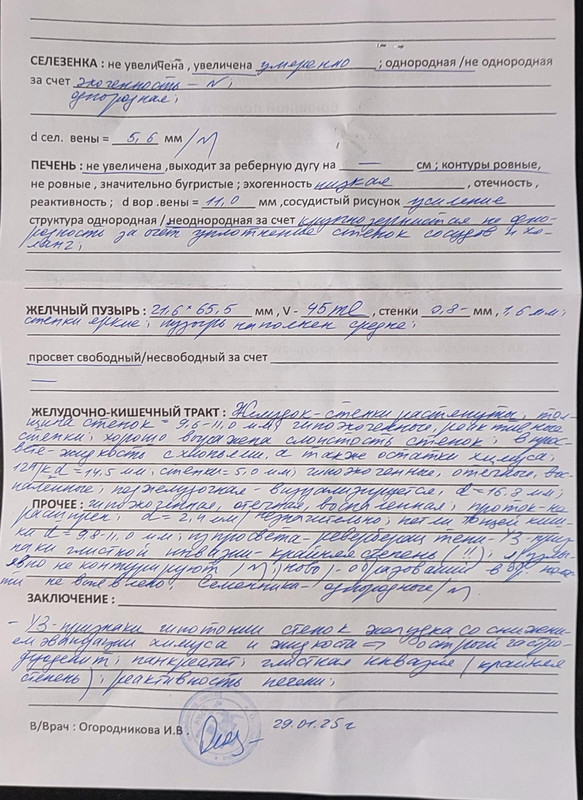 СЕЛЕЗЕНКА : не увеличена , увеличена умеренно ; однородная /не однородная
за счет эхогенность – N ;
однородная ;
d сел. вены = 5,6 мм /N
ПЕЧЕНЬ : не увеличена ,выходит за реберную дугу на — см ; контуры ровные,
не ровные , значительно бугристые ; эхогенность низкая , отечность ,
реактивность ; d вор .вены = 11,0 мм ,сосудистый рисунок усиление
структура однородная /неоднородная за счет крупнозернистая не одно-
родность за счет уплотнение стенок сосудов и хо-
ланг ;
ЖЕЛЧНЫЙ ПУЗЫРЬ : 21,6 × 65,5 мм , V - 45 ml , стенки 0,8- мм , 1,6 мм ;
стенки яркие ; пузырь наполнен средне ;
просвет свободный/несвободный за счет
—
ЖЕЛУДОЧНО-КИШЕЧНЫЙ ТРАКТ : Желудок – стенки растянуты, тол-
щина стенок = 9,6-11,0 мм ; гипоэхогенные, реактивные
стенки ; хорошо выражена слоистость стенок ; в прос-
вете – жидкость с хлопьями, а также остатки химуса ;
12п/к d = 14,5 мм ; стенки = 5,0 мм ; гипоэхогенные, отечные, вос-
паленные ; поджелудочная – визуализируется, d = 16,8 мм ;
ПРОЧЕЕ : гипоэхогенная, отечная, воспаленная ; проток – не
расширен ; d = 2,4 мм незначительно ; петли тощей киш-
ки d = 9,8-11,0 мм ; из просвета – реверберац тени – УЗ-приз-
наки глистной инвазии – крайняя степень (!!) ; л/узлы
явно не контурируют /N ; новообразований в бр. полос-
ти не выявлено ; Семенники – однородные /N
ЗАКЛЮЧЕНИЕ :
- УЗ-признаки гипотонии стенок желудка со снижени-
ем эвакуации химуса и жидкости → острый гастро-
дуоденит ; панкреатит ; глистная инвазия (крайняя
степень) ; реактивность печени ;
В/Врач : Огородникова И.В . 29.01.25 г